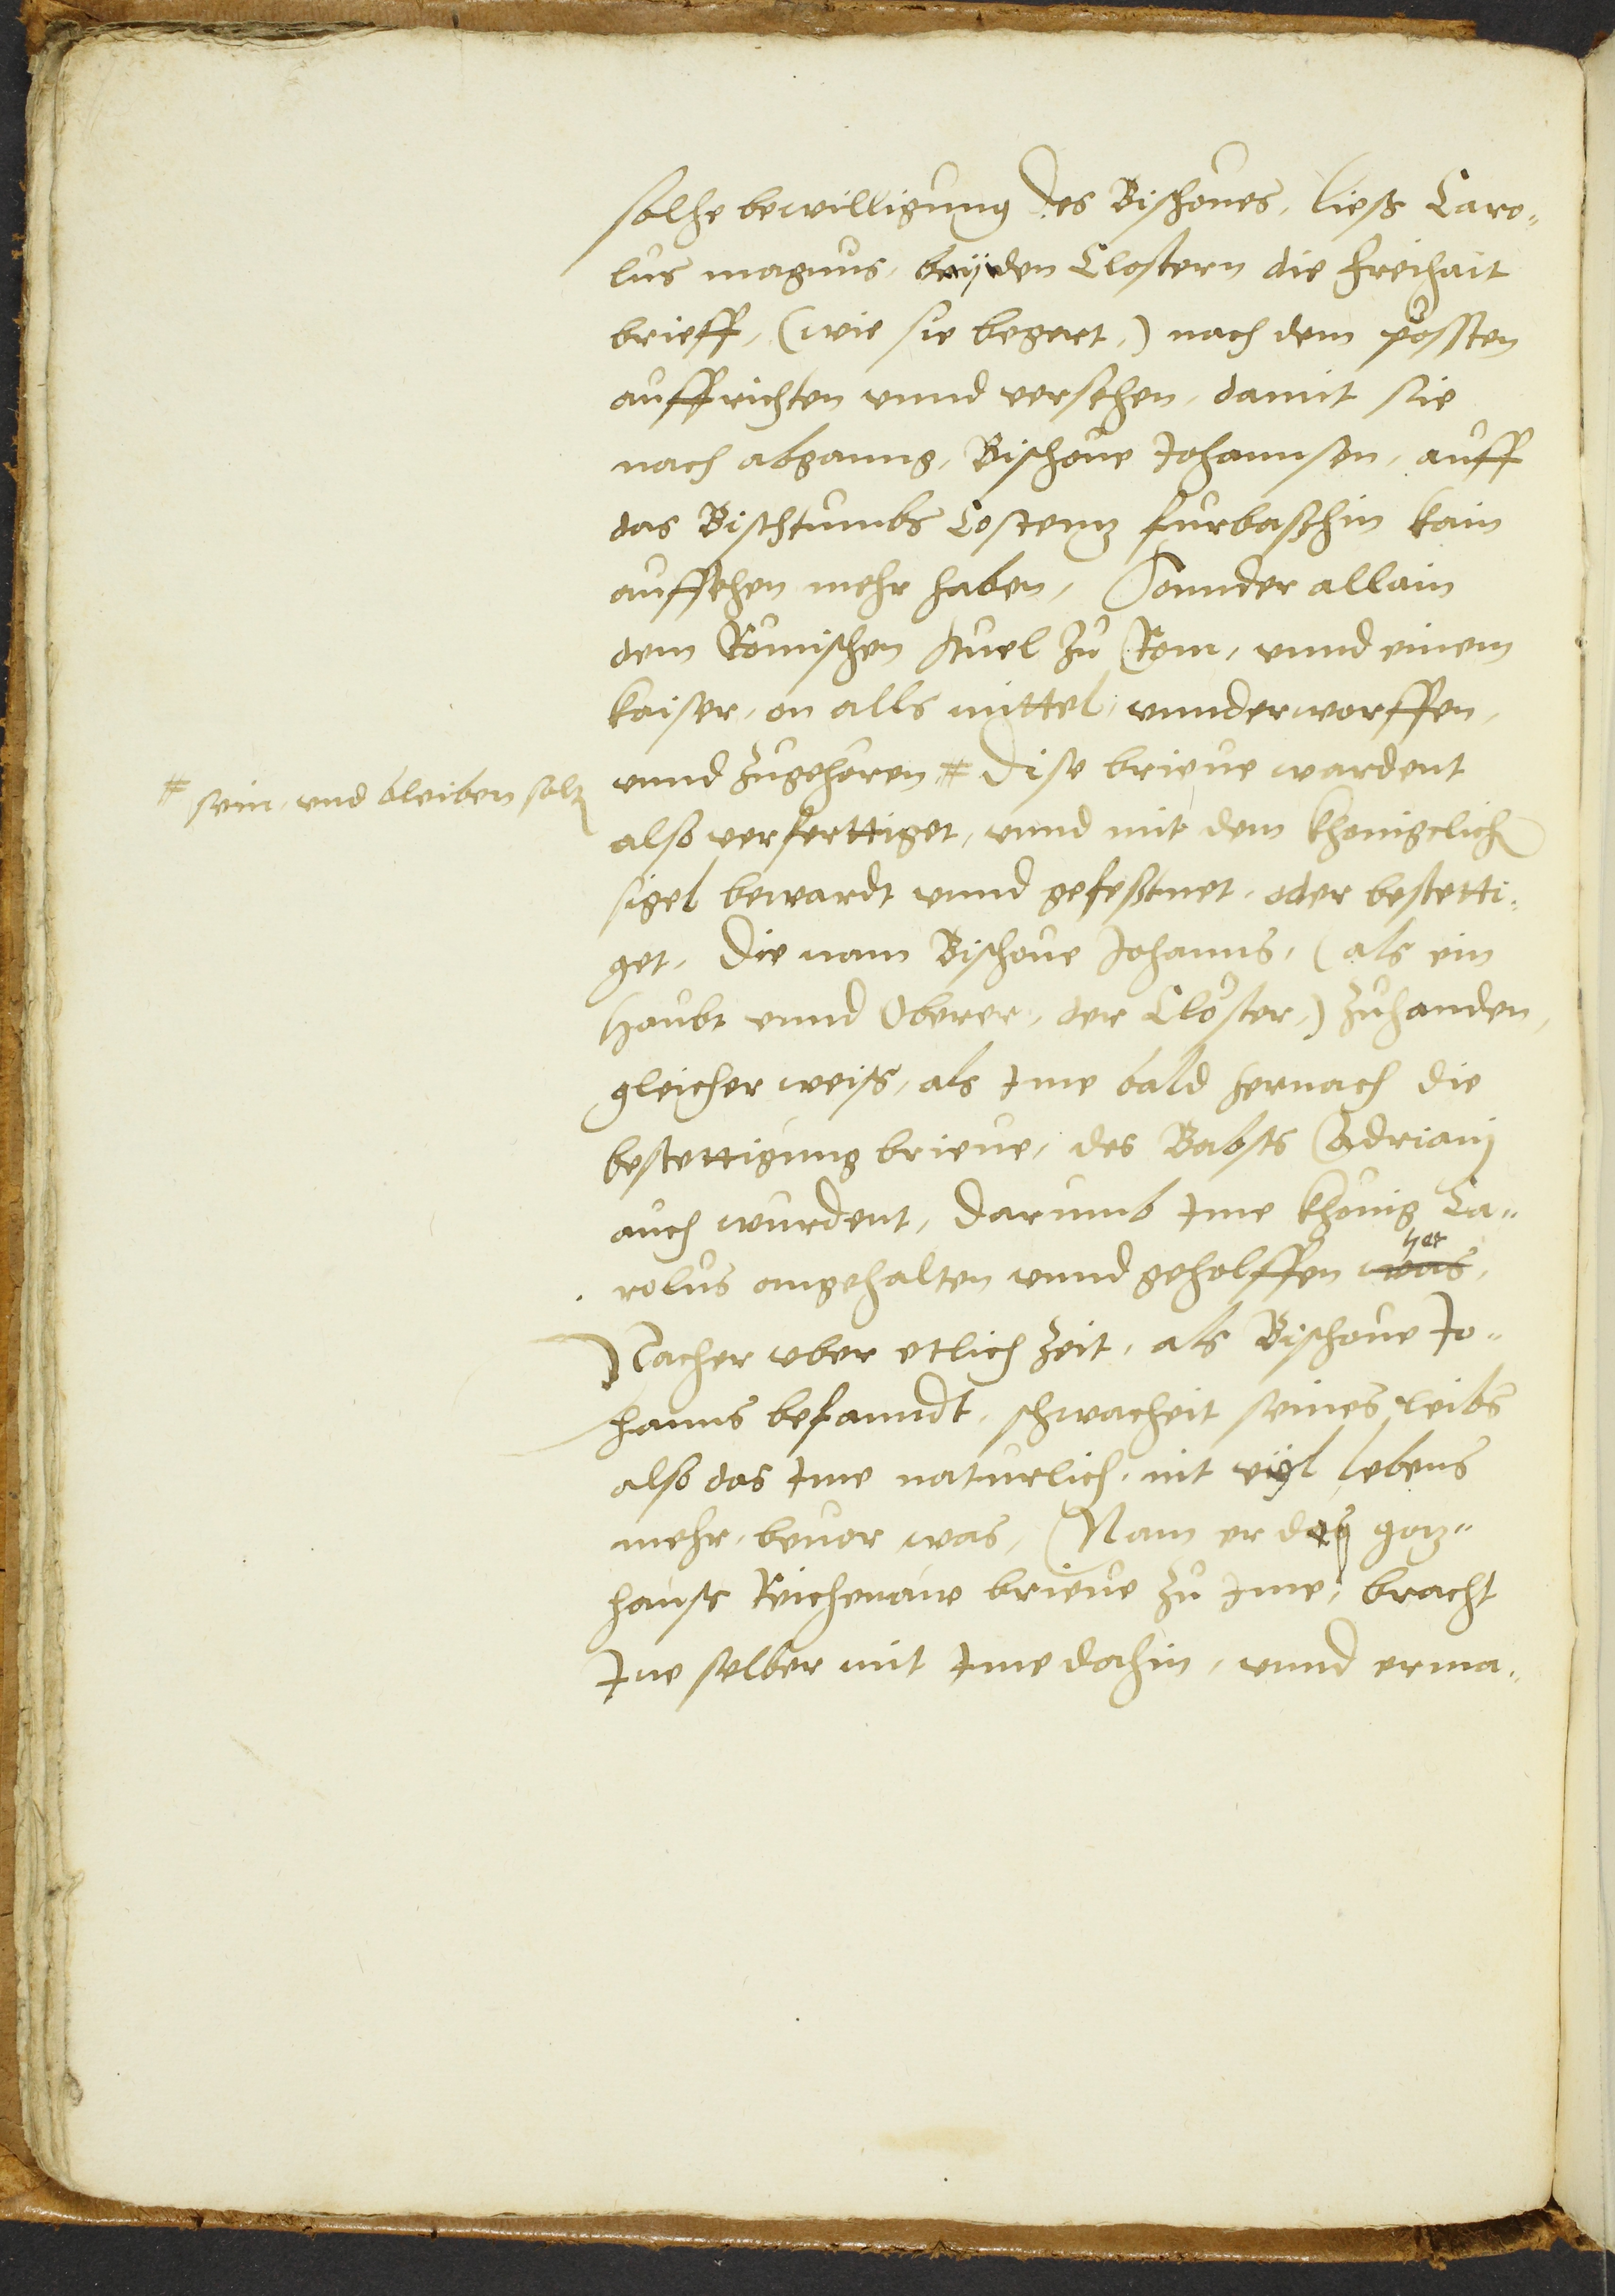 solhe bewilligung des Bischoues, liess Caro„
lus magnus, beÿden Clostern die freihait
brieff, (wie sie begert,) nach dem possten
auffrichten vnnd versehen, damit sie
nach abganng, Bischoue Johannsen, auff
das Bischtumbs Costenz furbasshin kain
auffsehen mehr haben, Sonnder allain
dem Römischen stuel zu Rom, vnnd einem
kaiser, on alls mittel, vnnderworffen,
vnnd zugehören # dise brieue wardent
# sein, vnd bleiben soln
also verferttiget, vnnd mit dem khonigclich
sigel bewardt vnnd gefesstnet, oder bestetti„
get, die nam Bischoue Johanns, (als ein
Haubt vnnd Oberer, der Clöster,) zuhanden,
gleicher weiss, als Ime bald hernach die
bestettigung brieue, des Babsts Adrianj
auch wurdent, darumb Ime khönig Ca„
rolus angehalten vnnd geholffen was, het
Nacher vber etlich zeit, als Bischoue Jo„
hanns befanndt, schwacheit seines leibs
also das Ime naturlich, nit vÿl lebens
mehr, beuor was, Nam er des goz„
hauss Reichenaw brieue zu Ime, bracht
Ine selber mit Ime dahin, vnnd erma„